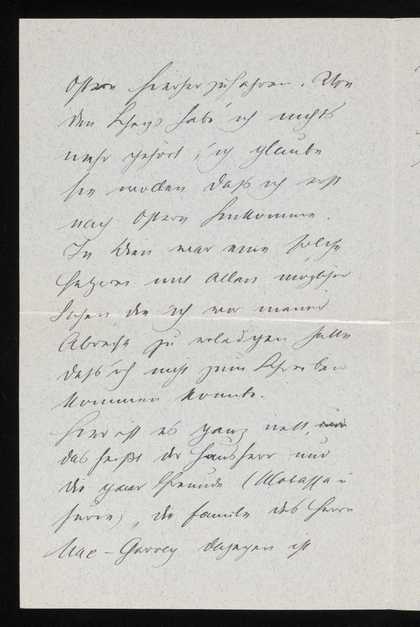 Ostern hierher zu fahren. Von
den habe ich nichts
mehr gehört, ich glaube
sie wollen daß ich erst
nach Ostern hinkomme.
In Wien war eine solche
Hetzerei mit allen möglichen
Sachen die ich vor meiner
Abreise zu erledigen hatte
daß ich nicht zum Schreiben
kommen konnte.
Hier ist es ganz nett,
das heißt der Hausherr und
die Freunde
die Familie des Herrn
Mac-Garvey dagegen ist